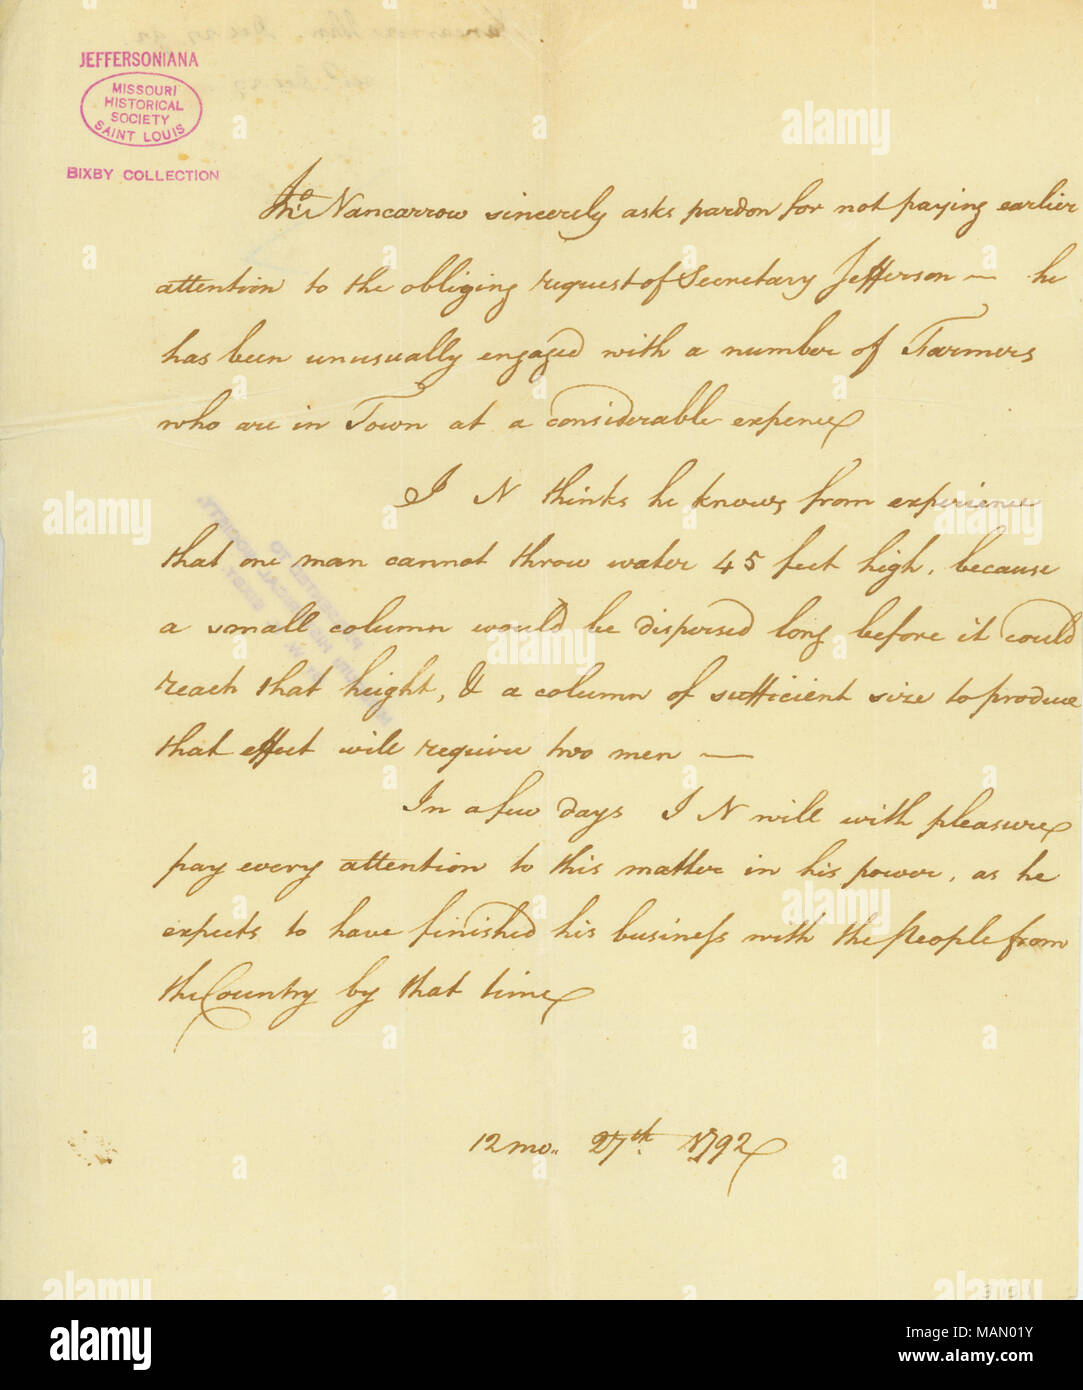 JEFFERSONIANA
MISSOURI
HISTORICAL
SOCIETY
SAINT LOUIS
BIXBY COLLECTION
Nancarrow sincerely asks pardon for not paying earlier
attention to the obliging request of Secretary Jefferson — he
has been unusually engaged with a number of Farmers
who are in Town at a considerable expence
I N thinks he knows from experience
that one man cannot throw water 45 feet high, because
a small column would be dispersed long before it could
reach that height, & a column of sufficient size to produce
that effect will require two men —
In a few days I N will with pleasure
pay every attention to this matter in his power, as he
expects to have finished his business with the People from
the Country by that time
12 mo. 27th 1792
alamy
Image ID: MAN01Y
www.alamy.com